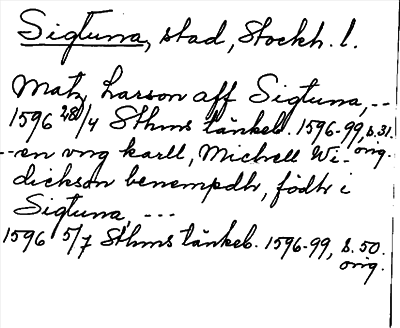 Sigtuna, stad, Stockh. l.
Matz Larson aff Sigtuna, --
1596 28/4 Sthms tänkeb. 1596-99, s. 31.
orig.
-- en vng karll, Michell Wi-
dickson benempdh, födh i
Sigtuna, ---
1596 5/7 Sthms tänkeb. 1596-99, s. 50.
orig.